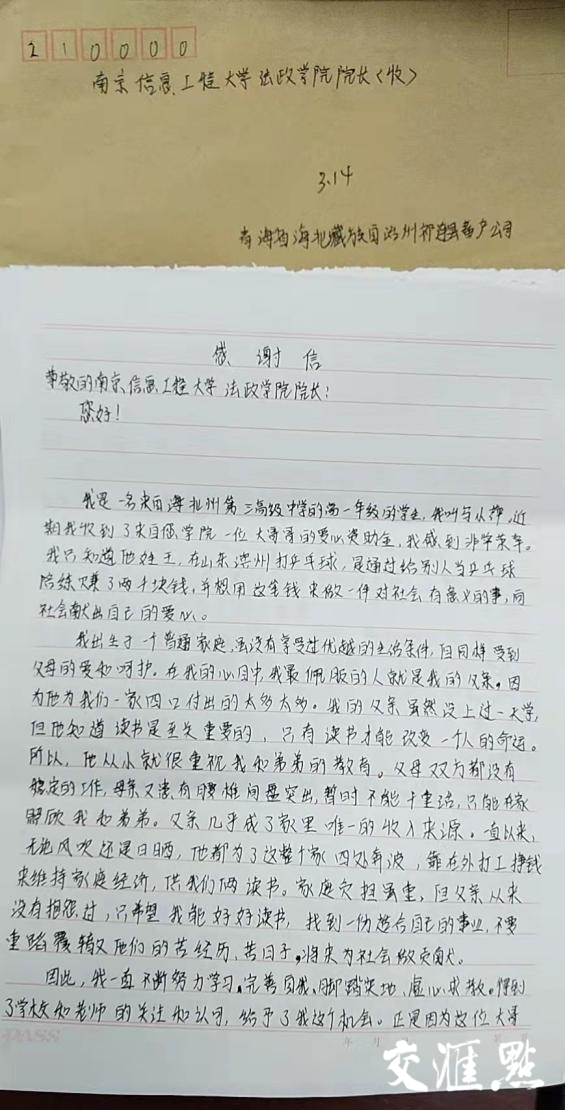 210000
南京信息工程大学法政学院院长(收)
3.14
青海省海北藏族自治州祁连县畜产公司
感谢信
尊敬的南京信息工程大学法政学院院长:
您好!
我是一名来自海北州第三高级中学的高一年级的学生,我叫马从祥。近
期我收到了来自您学院一位大哥哥的爱心资助金,我感到非常荣幸。
我只知道他姓王,在山东滨州打乒乓球,是通过给别人当乒乓球
陪练赚了两千块钱,并想用这笔钱来做一件对社会有意义的事,向
社会献出自己的爱心。
我出生于一个普通家庭,虽没有享受过优越的生活条件,但同样受到
父母的爱和呵护。在我的心目中,我最佩服的人就是我的父亲。因
为他为我们一家四口付出的太多太多。我的父亲虽然没上过一天学,
但他知道读书是至关重要的,只有读书才能改变一个人的命运。
所以,他从小就很重视我和弟弟的教育。父母双方都没有
稳定的工作,母亲又患有腰椎间盘突出,暂时不能干重活,只能在家
照顾我和弟弟。父亲几乎成了家里唯一的收入来源。一直以来,
无论风吹还是日晒,他都为了这整个家四处奔波,靠在外打工挣钱
来维持家庭经济,供我们俩读书。家庭负担虽重,但父亲从来
没有抱怨过,只希望我能好好读书,找到一份适合自己的事业,不要
重蹈覆辙他们的苦经历、苦日子,将来为社会做贡献。
因此,我一直不断努力学习、完善自我、脚踏实地、虚心求教。得到
了学校和老师的关注和认可,给予了我这个机会。正是因为这位大哥
年 月
交汇点